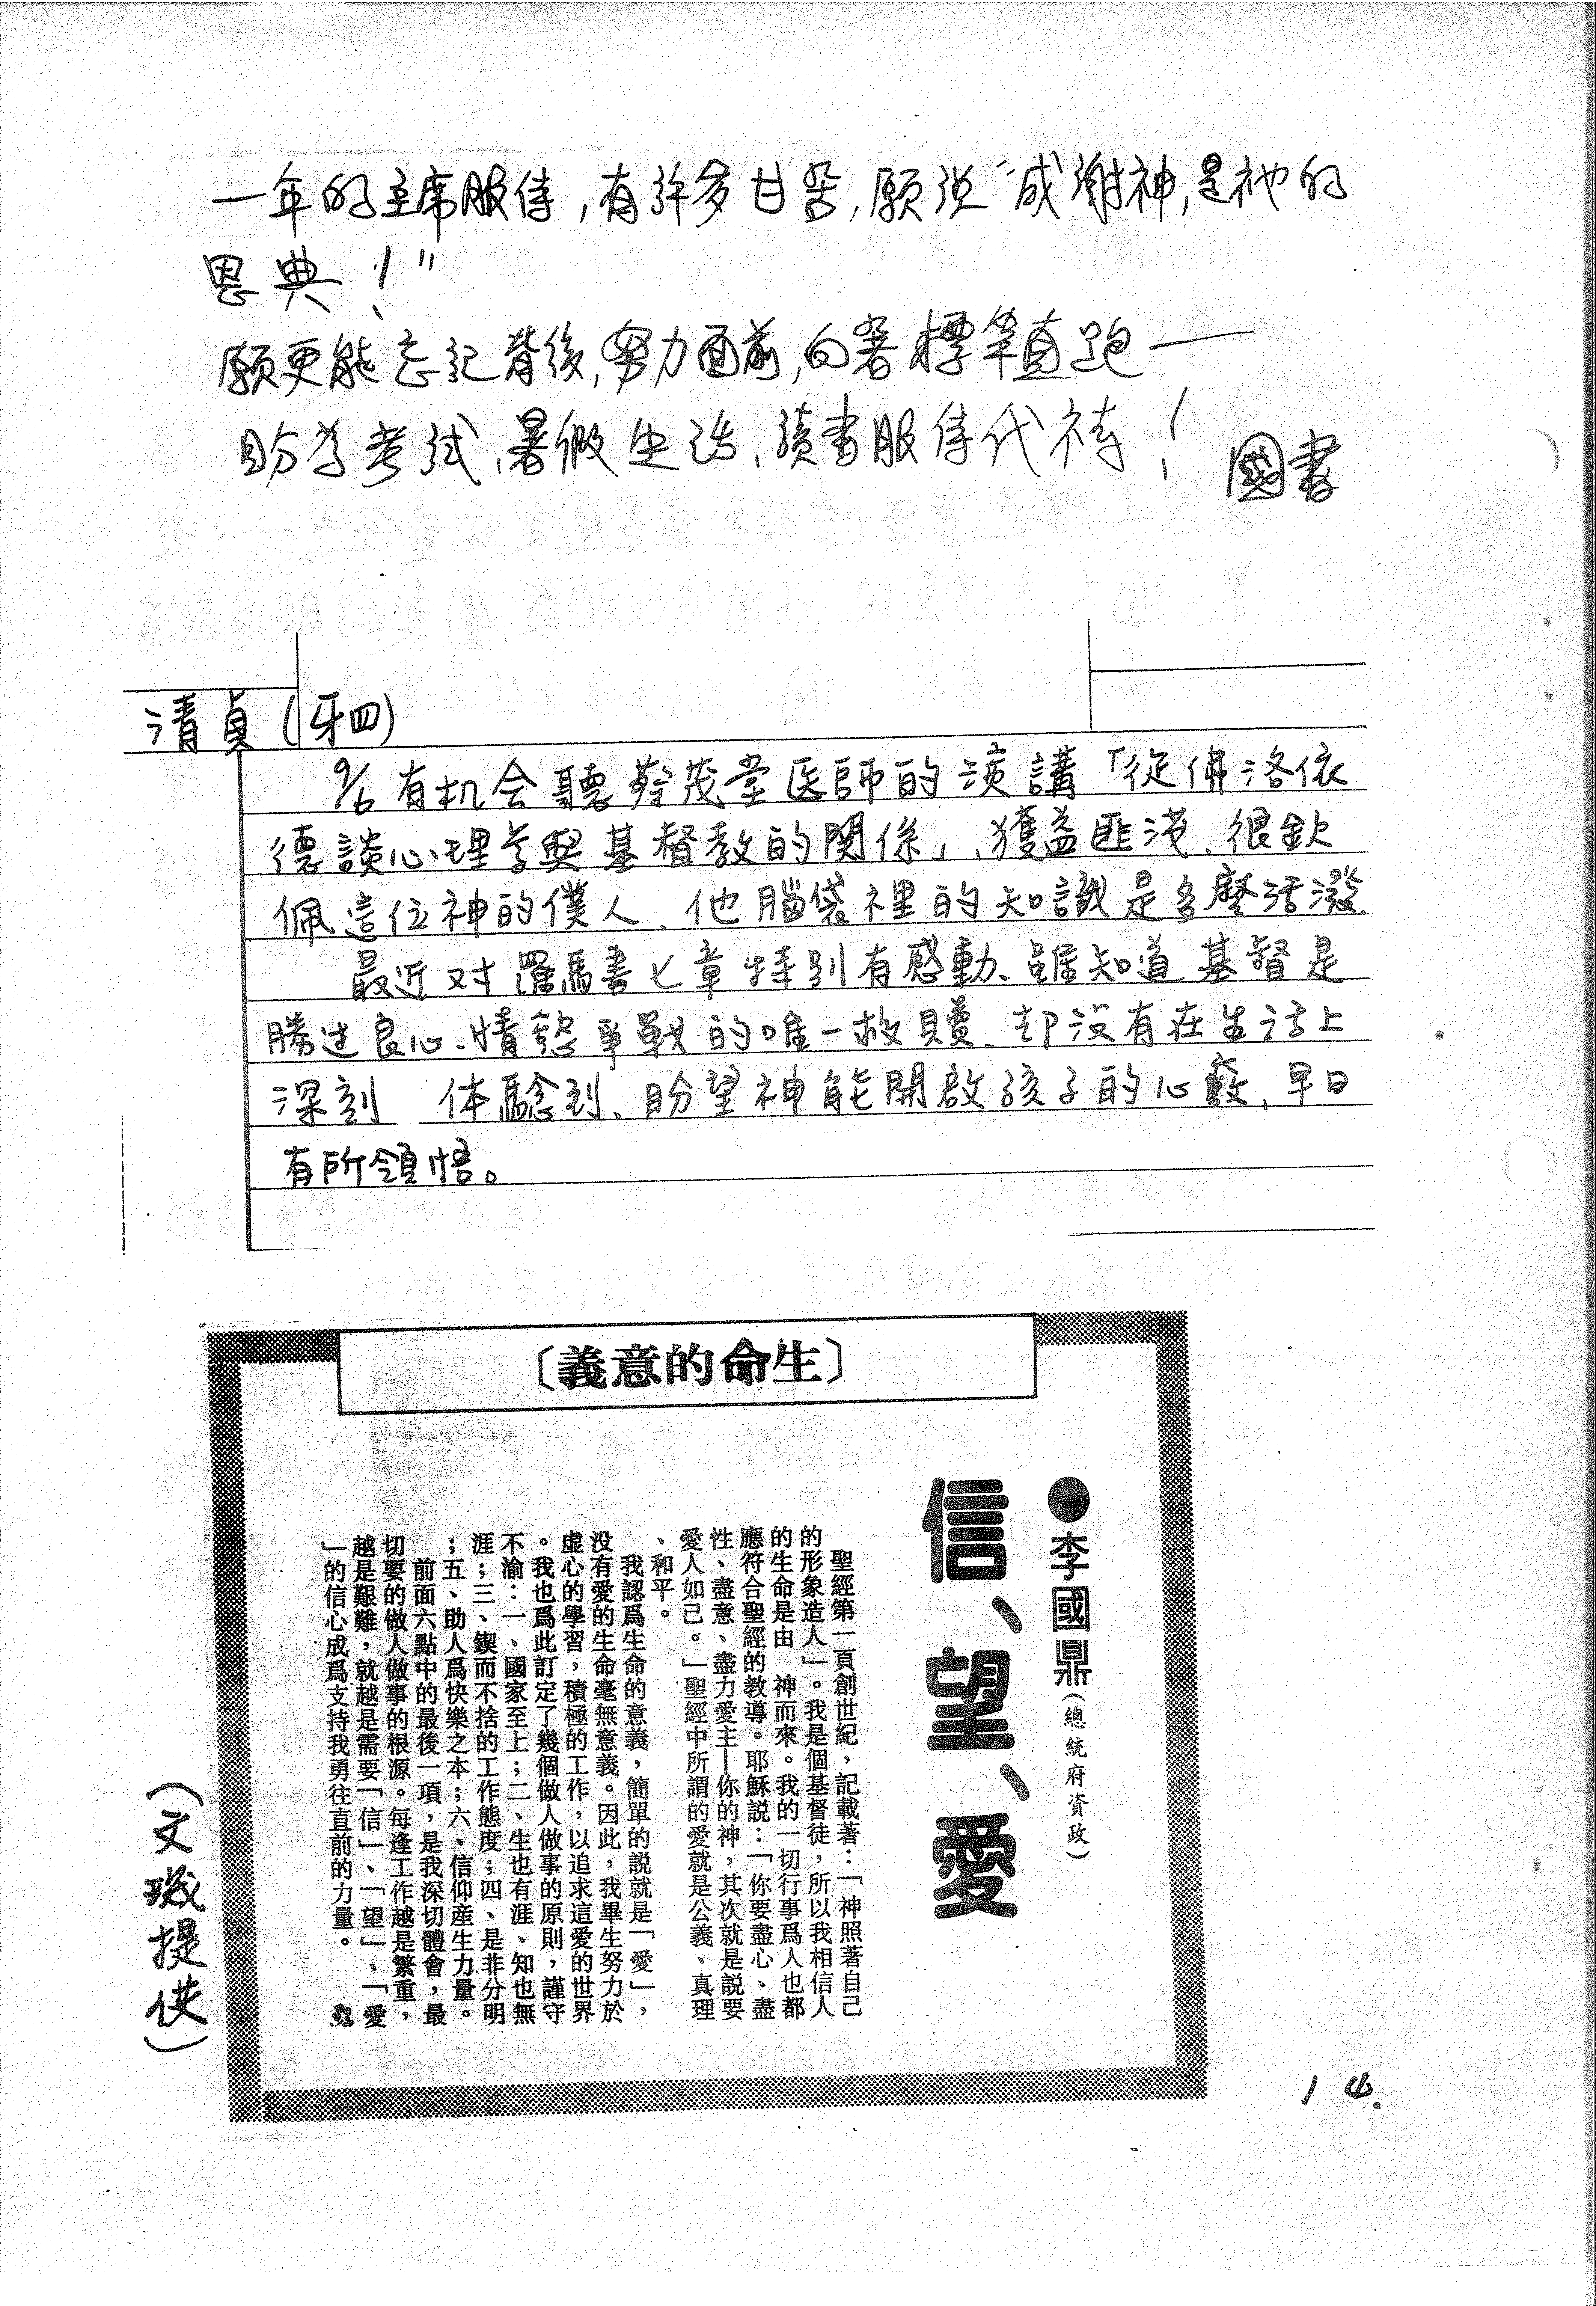 一年的主席服侍,有許多甘苦,願說“感謝神,是祂的
恩典!”
願更能忘記背後,努力面前,向著標竿直跑——
盼為考試、暑假生活、讀書服侍代禱!
國書
清貞(牙四)
9/6有机会聽蔡茂堂医師的演講「從佛洛依
德談心理学與基督教的関係」、獲益匪淺、很欽
佩這位神的僕人、他腦袋裡的知識是多麼活潑.
最近对羅馬書七章特別有感動、雖知道基督是
勝过良心、情慾爭戰的唯一救贖、却没有在生活上
深刻 体驗到、盼望神能開啟孩子的心竅、早日
有所領悟。
〔義意的命生〕
●李國鼎(總統府資政)
信、望、愛
聖經第一頁創世紀,記載著:「神照著自己
的形象造人」。我是個基督徒,所以我相信人
的生命是由 神而來。我的一切行事爲人也都
應符合聖經的教導。耶穌説:「你要盡心、盡
性、盡意、盡力愛主—你的神,其次就是説要
愛人如己。」聖經中所謂的愛就是公義、真理
、和平。
我認爲生命的意義,簡單的説就是「愛」,
没有愛的生命毫無意義。因此,我畢生努力於
虛心的學習,積極的工作,以追求這愛的世界
。我也爲此訂定了幾個做人做事的原則,謹守
不渝:一、國家至上;二、生也有涯、知也無
涯;三、鍥而不捨的工作態度;四、是非分明
;五、助人爲快樂之本;六、信仰産生力量。
前面六點中的最後一項,是我深切體會,最
切要的做人做事的根源。每逢工作越是繁重,
越是艱難,就越是需要「信」、「望」、「愛
」的信心成爲支持我勇往直前的力量。
(文璣提供)
14.